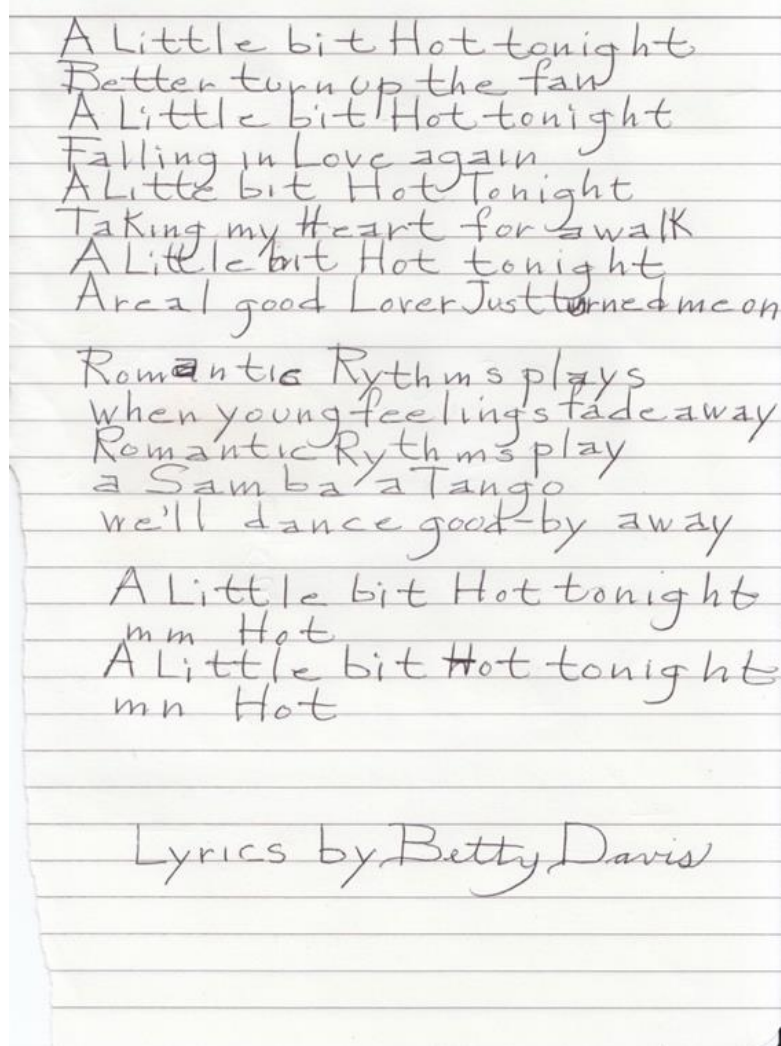 A Little bit Hot tonight
Better turn up the fan
A Little bit Hot tonight
Falling in Love again
A Litte bit Hot Tonight
Taking my Heart for a walk
A Little bit Hot tonight
A real good Lover Just turned me on
Romantic Rythms plays
when young feelings fade away
Romantic Rythms play
a Samba a Tango
we'll dance good-by away
A Little bit Hot tonight
mm Hot
A Little bit Hot tonight
mn Hot
Lyrics by Betty Davis